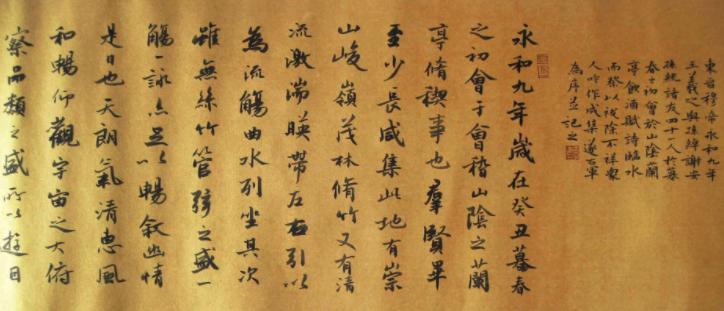 東晉穆帝永和九年
王羲之與孫綽謝安
孫統諸友四十一人於暮
春之初會於山陰蘭
亭飲酒賦詩臨水
而祭以祓除不祥
人吟作成集遂右軍
為序並記之
永和九年歲在癸丑暮春
之初會于會稽山陰之蘭
亭脩禊事也羣賢畢
至少長咸集此地有崇
山峻嶺茂林脩竹又有清
流激湍暎帶左右引以
為流觴曲水列坐其次
雖無絲竹管弦之盛一
觴一詠亦足以暢敘幽情
是日也天朗氣清惠風
和暢仰觀宇宙之大俯
察品類之盛所以遊目